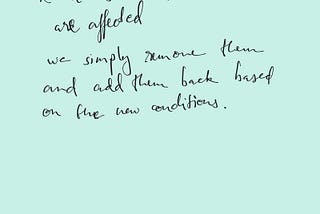 are affected
we simply remove them
and add them back based
on the new conditions.